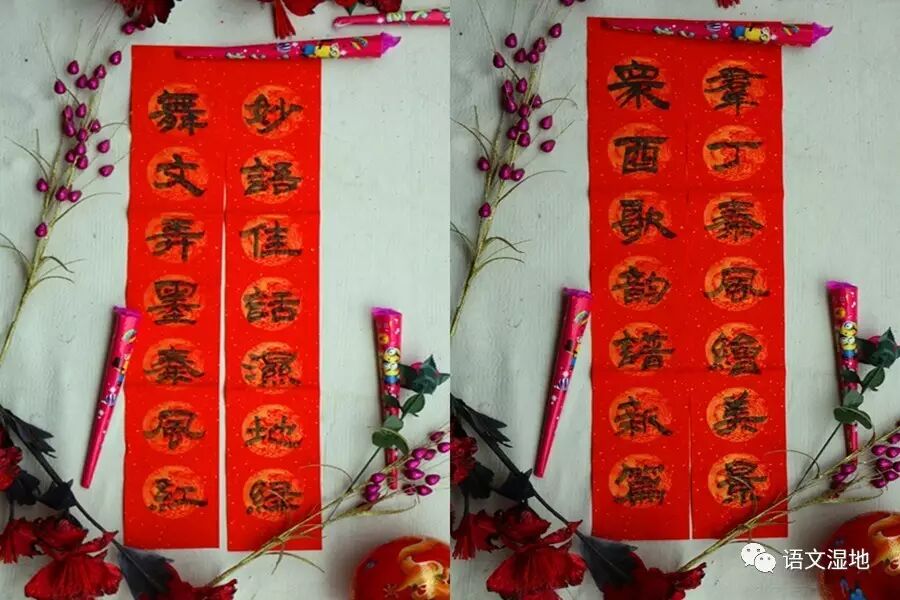 妙語佳話濕地緑
舞文弄墨秦風紅
羣丁嘉風繪美景
衆酉歌韵譜新篇
语文湿地